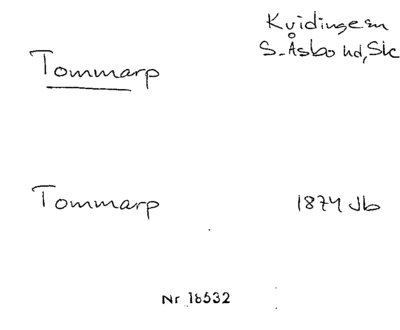 Kvidinge sn
S. Åsbo hd, Sk
Tommarp
Tommarp 1874 Jb
Nr 18532